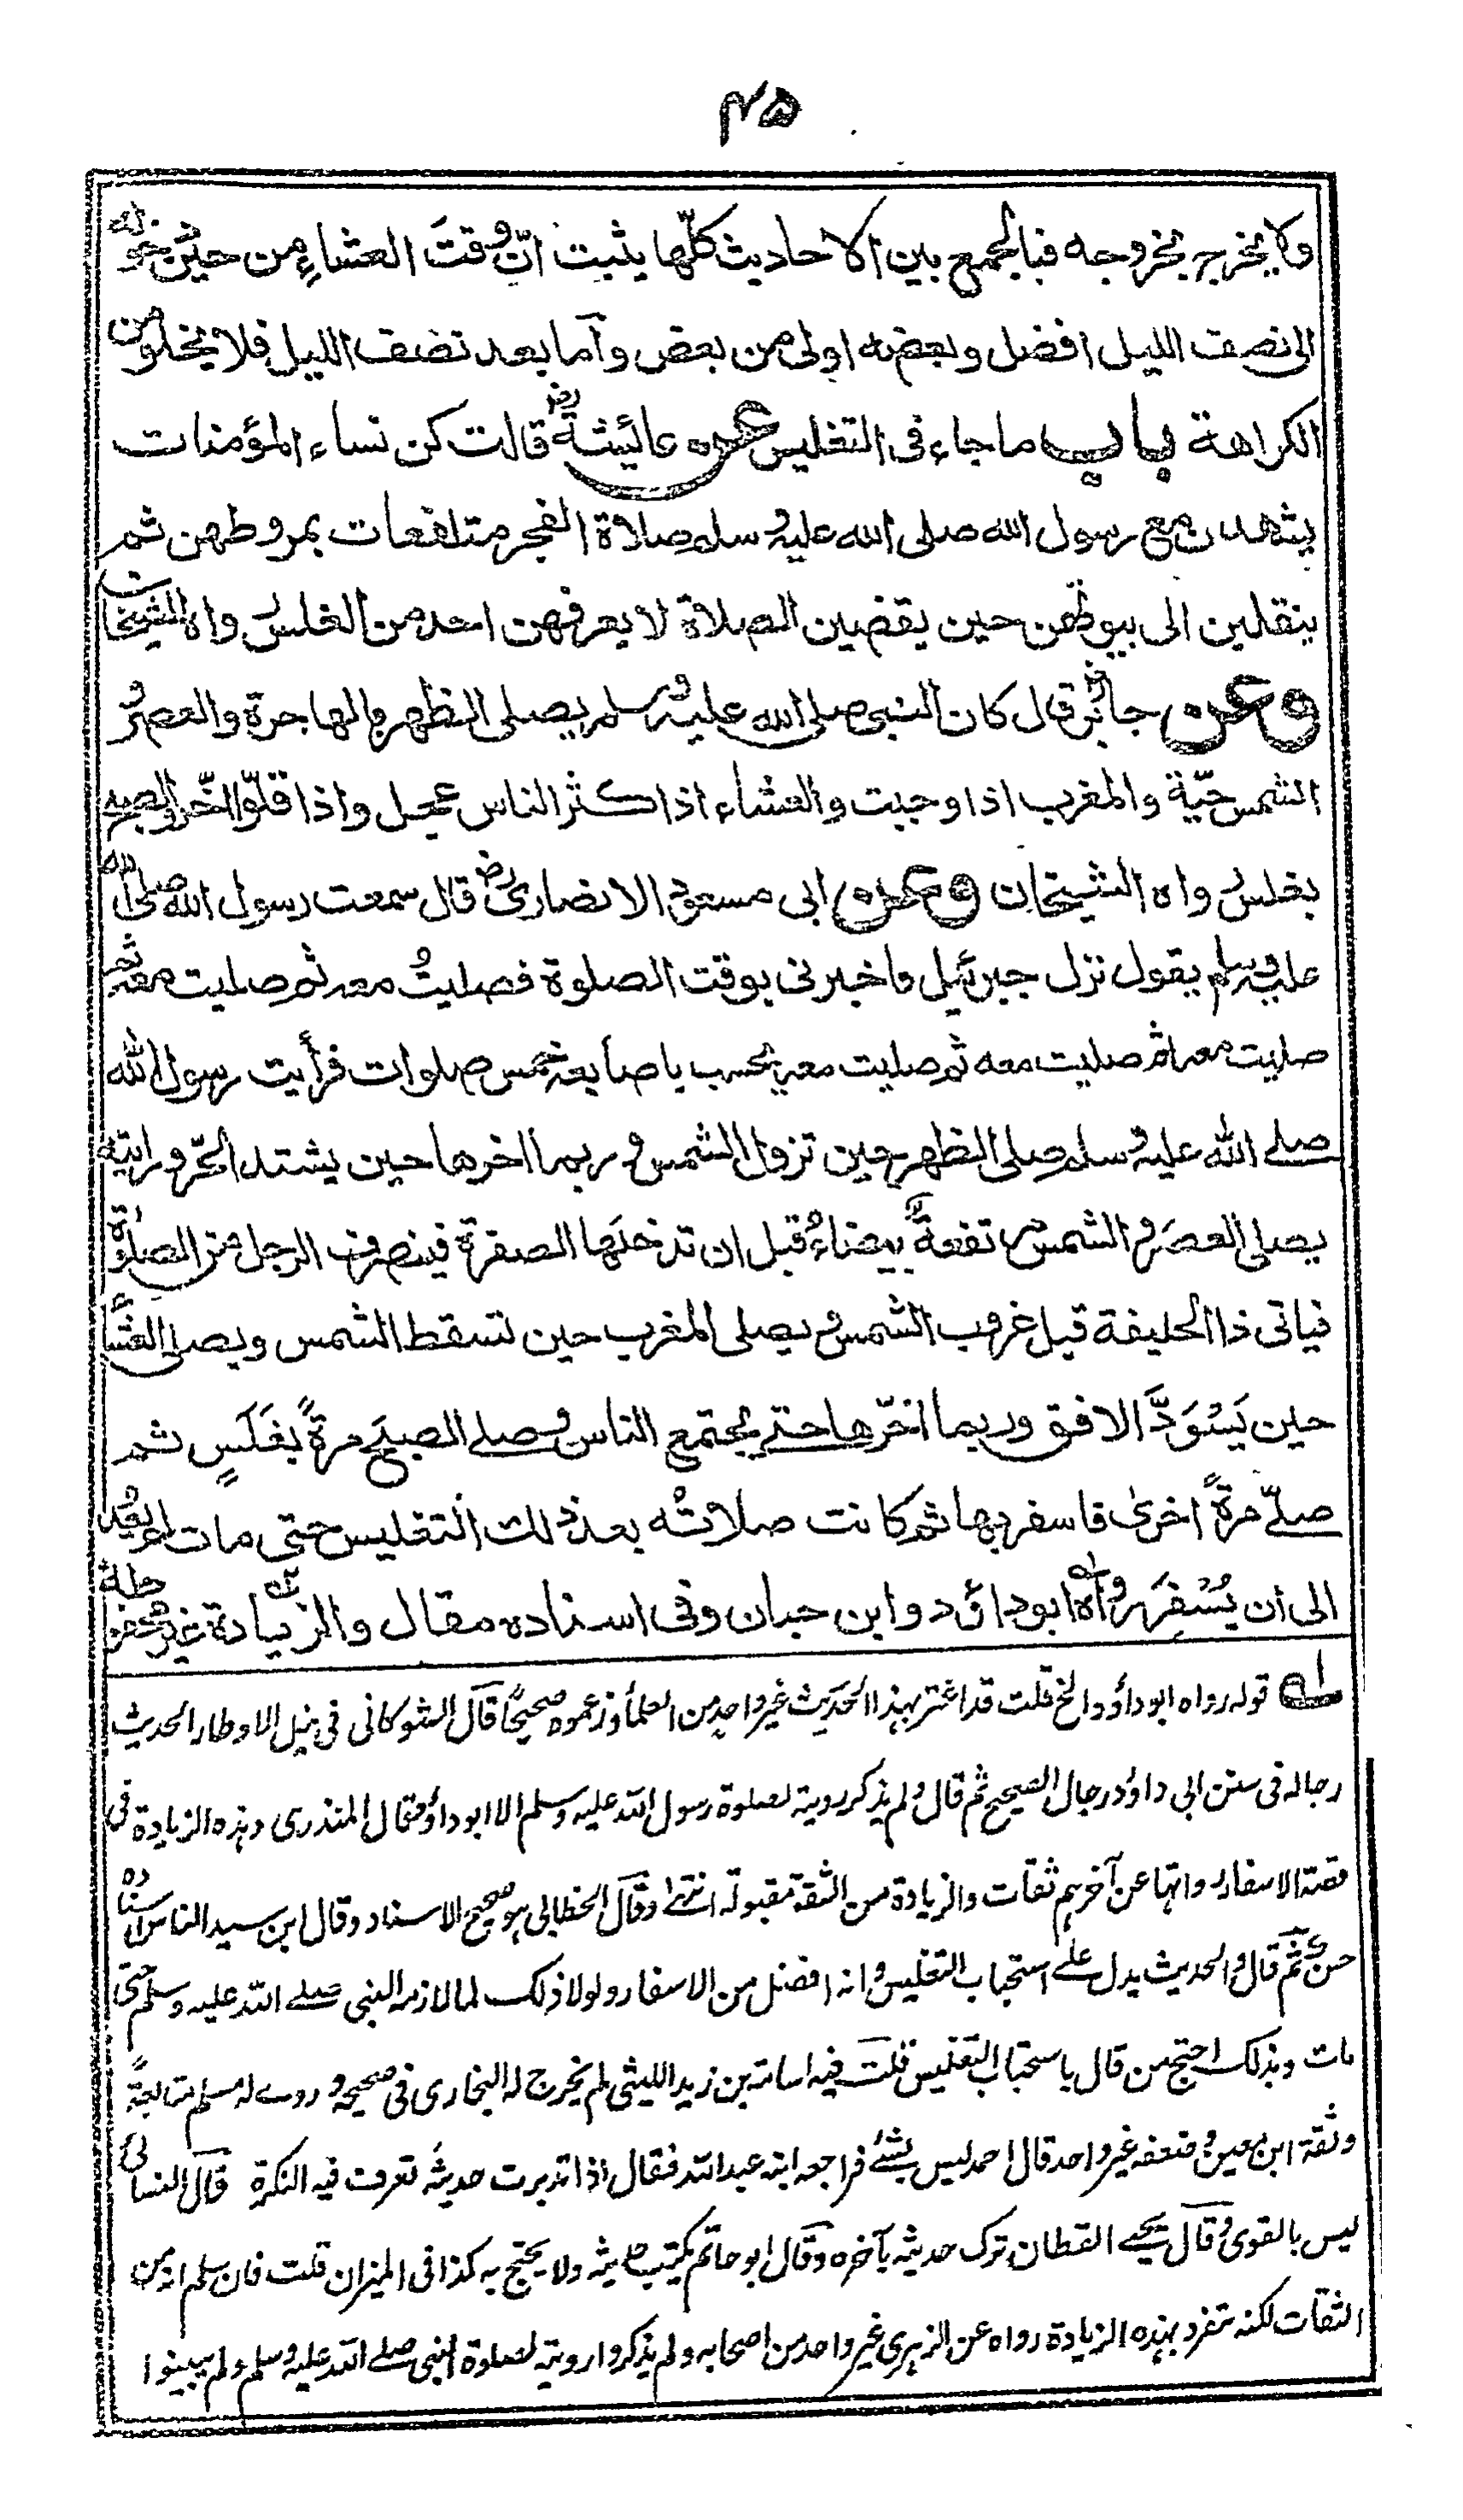 ۴۵
ولا يخرج بخروجه فبالجمع بين الاحاديث كلّها يثبت انّ وقتَ العشاءِ من حين دخوله
الى نصف الليل افضل وبعضه اولى من بعض وأما بعد نصف الليل فلا يخلو من
الكراهة باب ما جاء فى التغليس عن عائيشة رض قالت كن نساء المؤمنات
يشهدن مع رسول الله صلى الله عليه وسلم صلاة الفجر متلفعات بمروطهن ثم
ينقلبن الى بيوتهن حين يقضين الصلاة لا يعرفهن احد من الغلس رواه الشيخان
وعن جابر رض قال كان النبى صلى الله عليه وسلم يصلى الظهر بالهاجرة والعصر و
الشمس حيّة والمغرب اذا وجبت والعشاء اذا كثر الناس عجل واذا قلّوا اخّر والصبح
بغلس رواه الشيخان وعن ابى مسعود الانصارى رض قال سمعت رسول الله صلى الله
عليه وسلم يقول نزل جبرئيل فاخبرنى بوقت الصلوة فصليتُ معه ثم صليت معه ثم
صليت معه ثم صليت معه ثم صليت معه يحسب باصابعه خمس صلوات فرأيت رسول الله
صلے الله عليه وسلم صلى الظهر حين تزول الشمس و ربما اخرها حين يشتد الحرّ ورايته
يصلى العصرَ والشمس مرتفعةٌ بيضاءُ قبل ان تدخلَها الصفرة فينصرف الرجل من الصلوٰة
فياتى ذا الحليفة قبل غروب الشمس و يصلى المغرب حين تسقط الشمس ويصلى العشاء
حين يَسْوَدَّ الافق وربما اخّرها حتے يجتمع الناس وصلے الصبحَ مرةً بغَلَسٍ ثم
صلّے مرةً اخرىٰ فاسفر بها ثم كانت صلاتُه بعد ذلك التغليس حتى مات لم يعُد
الى ان يُسْفِرَ رواه ابوداؤد وابن حبان وفى اسناده مقال والزيادة غير محفوظة
له قوله رواه ابوداؤد الخ قلت قد اغتر بهذا الحديث غير واحد من العلمأ وزعموه صحيحًا قال الشوكانى فى نيل الاوطار الحديث
رجاله فى سنن ابى داؤد رجال الصحيح ثم قال ولم يذكر روية لصلوة رسول الله عليه وسلم الا ابوداؤد قال المنذرى وهذه الزيادة فى
قصة الاسفار رواتها عن آخرهم ثقات والزيادة من الثقة مقبولة انتهٰى وقال الخطابى هو صحيح الاسناد وقال ابن سيد الناس اسناده
حسن ثم قال والحديث يدل علے استحباب التغليس وانه افضل من الاسفار ولولا ذلك لما لازمه النبى صلے الله عليه وسلم حتى
مات وبذلك احتج من قال باستحباب التغليس قلت فيه اسامة بن زيد الليثى لم يخرج له البخارى فى صحيحه و روے له مسلم متابعةً
وثقه ابن معين وضعفه غير واحد قال احمد ليس بشئ فراجعه ابنه عبدالله فقال اذا تدبرت حديثه تعرف فيه النكرة قال النسائى
ليس بالقوى وقال يحيے القطان ترك حديثه بآخره وقال ابو حاتم يكتب حديثه ولا يحتج به كذا فى الميزان قلت فان سلم انه من
الثقات لكنه تفرد بهذه الزيادة رواه عن الزهرى غير واحد من اصحابه ولم يذكروا روية لصلوة النبى صلے الله عليه وسلم ولم يبينوا